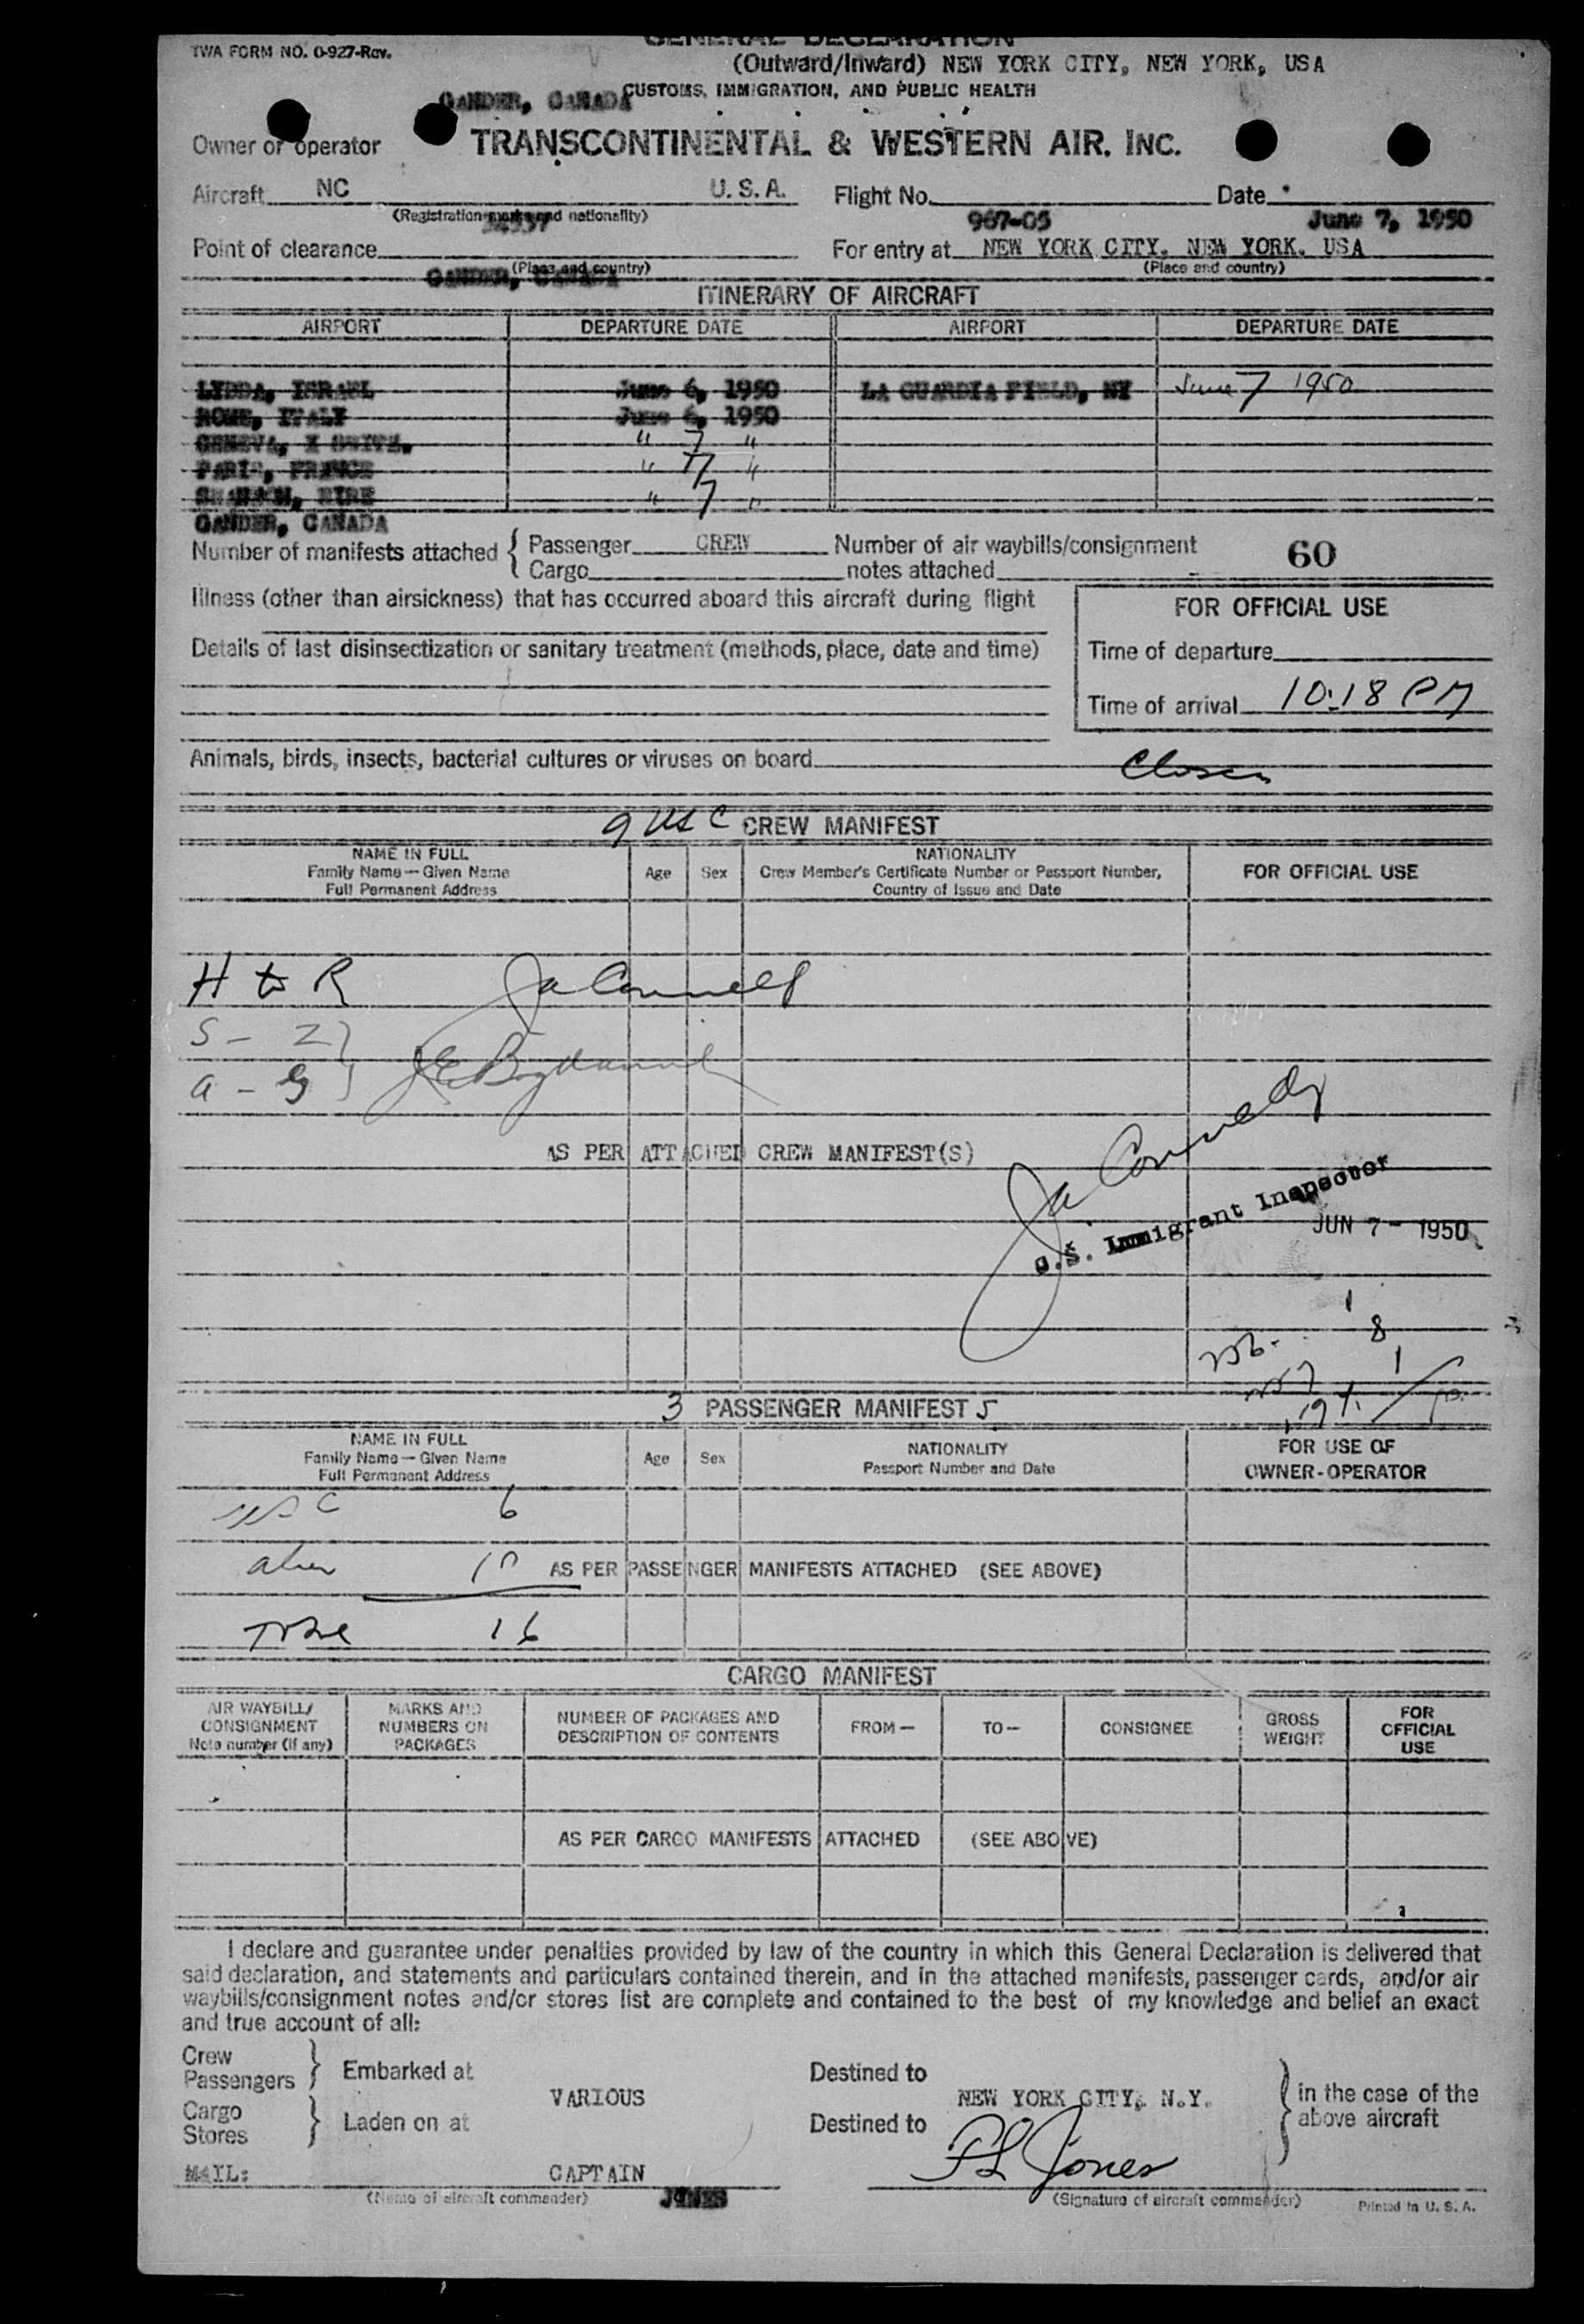 TWA FORM NO. 0-927-Rev.
GENERAL DECLARATION
(Outward/Inward) NEW YORK CITY, NEW YORK, USA
CUSTOMS, IMMIGRATION, AND PUBLIC HEALTH
GANDER, CANADA
Owner or operator TRANSCONTINENTAL & WESTERN AIR, INC.
Aircraft NC U.S.A. Flight No. 967-05 Date June 7, 1950
(Registration marks and nationality)
Point of clearance GANDER, CANADA For entry at NEW YORK CITY, NEW YORK, USA
(Place and country) (Place and country)
ITINERARY OF AIRCRAFT
AIRPORT DEPARTURE DATE AIRPORT DEPARTURE DATE
LYDDA, ISRAEL June 6, 1950 LA GUARDIA FIELD, NY June 7 1950
ROME, ITALY June 6, 1950
GENEVA, " 7 "
PARIS, FRANCE " 7 "
SHANNON, EIRE " 7 "
GANDER, CANADA
Number of manifests attached { Passenger CREW Number of air waybills/consignment 60
Cargo notes attached
Illness (other than airsickness) that has occurred aboard this aircraft during flight
FOR OFFICIAL USE
Details of last disinsectization or sanitary treatment (methods, place, date and time)
Time of departure
Time of arrival 10:18 PM
Animals, birds, insects, bacterial cultures or viruses on board
9 USC CREW MANIFEST
NAME IN FULL
Family Name — Given Name
Full Permanent Address
Age Sex
NATIONALITY
Crew Member's Certificate Number or Passport Number,
Country of Issue and Date
FOR OFFICIAL USE
H to R
S - Z }
a - G }
AS PER ATTACHED CREW MANIFEST(S)
U.S. Immigrant Inspector
JUN 7 - 1950
1
8
1
3 PASSENGER MANIFEST 5
NAME IN FULL
Family Name — Given Name
Full Permanent Address
Age Sex
NATIONALITY
Passport Number and Date
FOR USE OF
OWNER-OPERATOR
USC 6
alien 10 AS PER PASSENGER MANIFESTS ATTACHED (SEE ABOVE)
Total 16
CARGO MANIFEST
AIR WAYBILL/
CONSIGNMENT
Note number (if any)
MARKS AND
NUMBERS ON
PACKAGES
NUMBER OF PACKAGES AND
DESCRIPTION OF CONTENTS
FROM —
TO —
CONSIGNEE
GROSS
WEIGHT
FOR
OFFICIAL
USE
AS PER CARGO MANIFESTS ATTACHED (SEE ABOVE)
I declare and guarantee under penalties provided by law of the country in which this General Declaration is delivered that
said declaration, and statements and particulars contained therein, and in the attached manifests, passenger cards, and/or air
waybills/consignment notes and/or stores list are complete and contained to the best of my knowledge and belief an exact
and true account of all:
Crew
Passengers } Embarked at Destined to
VARIOUS NEW YORK CITY, N.Y.
Cargo
Stores } Laden on at Destined to
} in the case of the
above aircraft
MAIL: CAPTAIN JONES PL Jones
(Name of aircraft commander) (Signature of aircraft commander) Printed in U. S. A.